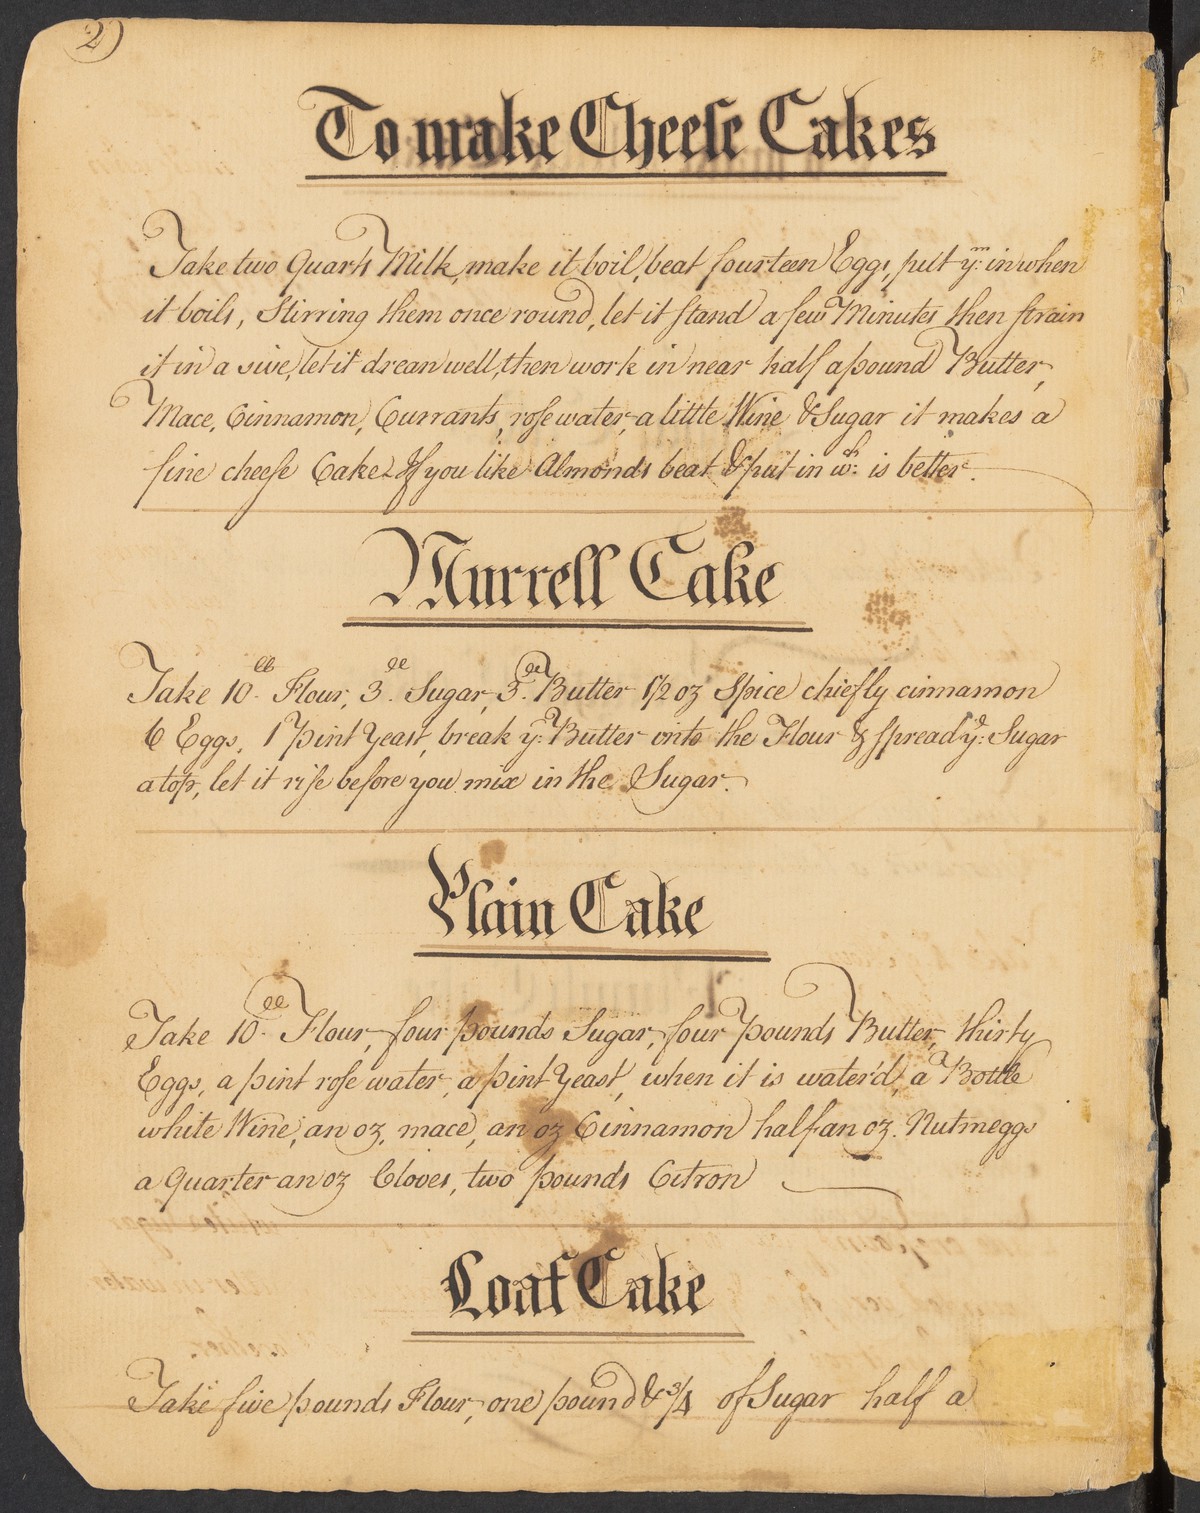 2)
To make Cheeſe Cakes
Take two Quarts Milk, make it boil, beat fourteen Eggs, put yᵐ: in when
it boils, Stirring them once round, let it ſtand a few Minutes then ſtrain
it in a sive, let it drean well, then work in near half a pound Butter,
Mace, Cinnamon, Currants, roſe water, a little Wine & Sugar it makes a
fine cheeſe Cake If you like Almonds beat & put in wʰ: is better.
Murrell Cake
Take 10ˡˡ. Flour, 3ˡˡ. Sugar, 3ˡˡ. Butter 1½ oz Spice chiefly cinnamon
6 Eggs, 1 pint Yeast, break yᵉ: Butter into the Flour & ſpread yᵉ: Sugar
atop, let it riſe before you mix in the Sugar.
Plain Cake
Take 10ˡˡ. Flour, four pounds Sugar, four pounds Butter, thirty
Eggs, a pint roſe water, a pint Yeast, when it is water'd, a Bottle
white Wine, an oz, mace, an oz Cinnamon half an oz. Nutmeggs
a Quarter an oz Cloves, two pounds Citron
Loaf Cake
Take five pounds Flour, one pound & 3/4 of Sugar half a